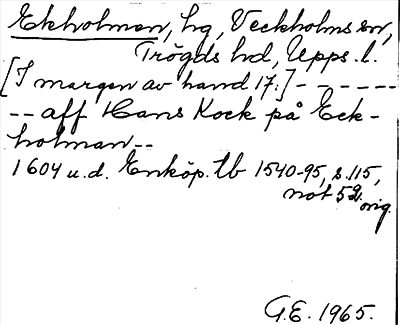 Ekholmen, hg, Veckholms sn,
Trögds hd, Upps. l.
[I margen av hand 17.] - - - - -
-- aff Hans Kock på Eck-
holman --
1604 u. d. Enköp. tb 1540-95, s. 115,
not 52 orig.
G.E. 1965.